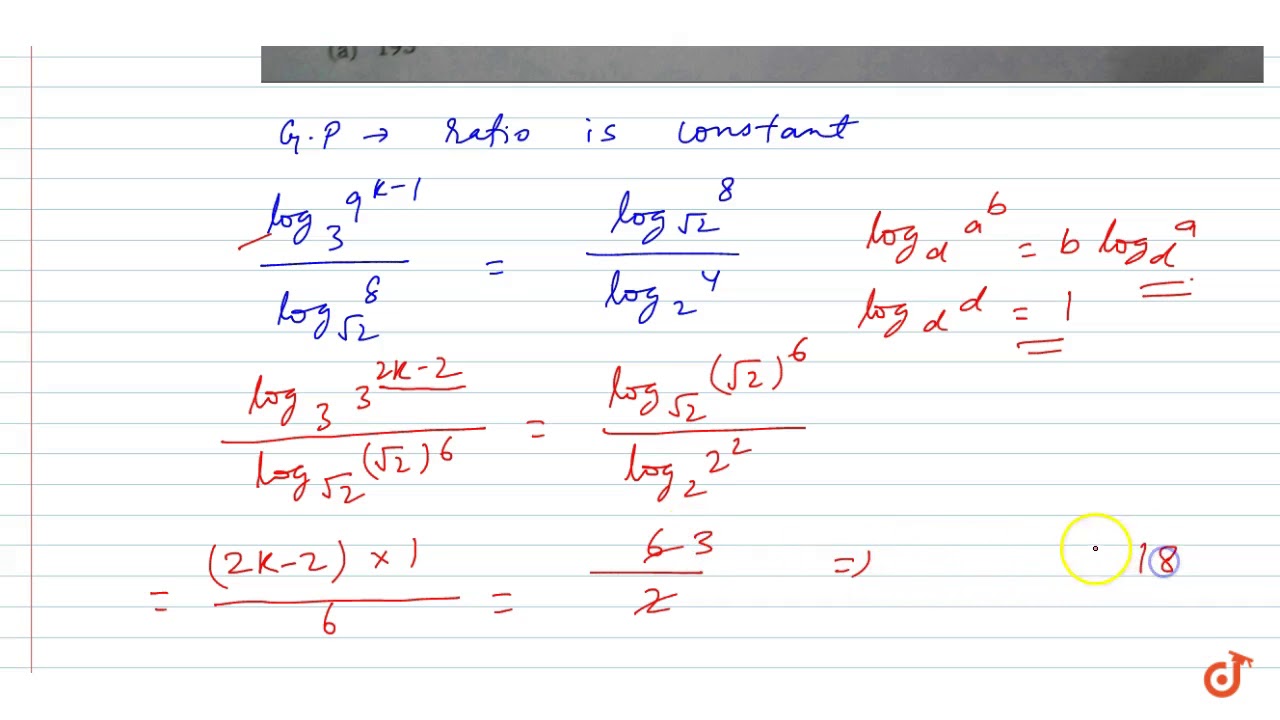 (a) 195
G.P → ratio is constant
log₃ 9^(k-1) / log_√2 8 = log_√2 8 / log₂ 4
log_d a^b = b log_d a
log_d d = 1
log₃ 3^(2k-2) / log_√2 (√2)^6 = log_√2 (√2)^6 / log₂ 2²
= (2k-2) × 1 / 6 = 6 3 / 2 ⇒ 18